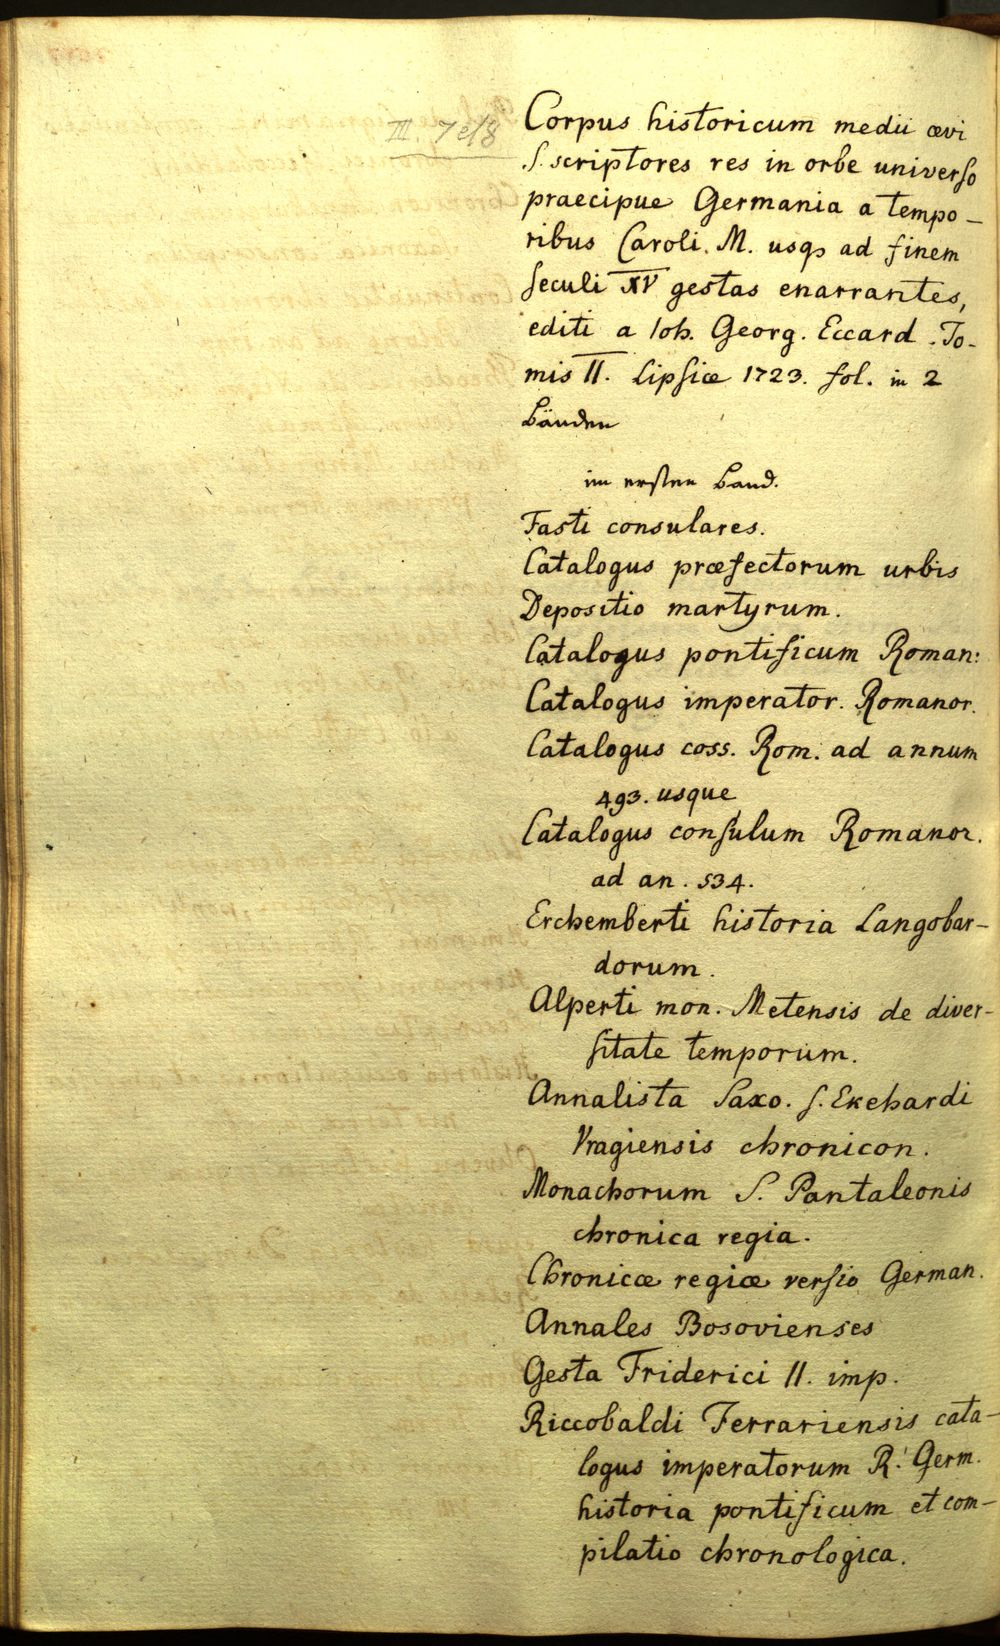 III. 7 et 8
Corpus historicum medii ævi
S. scriptores res in orbe universo
praecipue Germania a tempo-
ribus Caroli. M. usq3 ad finem
seculi XV gestas enarrantes,
editi a Ioh. Georg. Eccard. To-
mis II. Lipsiæ 1723. fol. in 2
Bänden
im ersten Band.
Fasti consulares.
Catalogus præfectorum urbis
Depositio martyrum.
Catalogus pontificum Roman:
Catalogus imperator. Romanor.
Catalogus coss. Rom. ad annum
493. usque
Catalogus consulum Romanor.
ad an. 534.
Erchemberti historia Langobar-
dorum.
Alperti mon. Metensis de diver-
sitate temporum.
Annalista Saxo. S. Ekehardi
Vragiensis chronicon.
Monachorum S. Pantaleonis
chronica regia.
Chronicæ regiæ versio German.
Annales Bosovienses
Gesta Friderici II. imp.
Riccobaldi Ferrariensis cata-
logus imperatorum R. Germ.
historia pontificum et com-
pilatio chronologica.